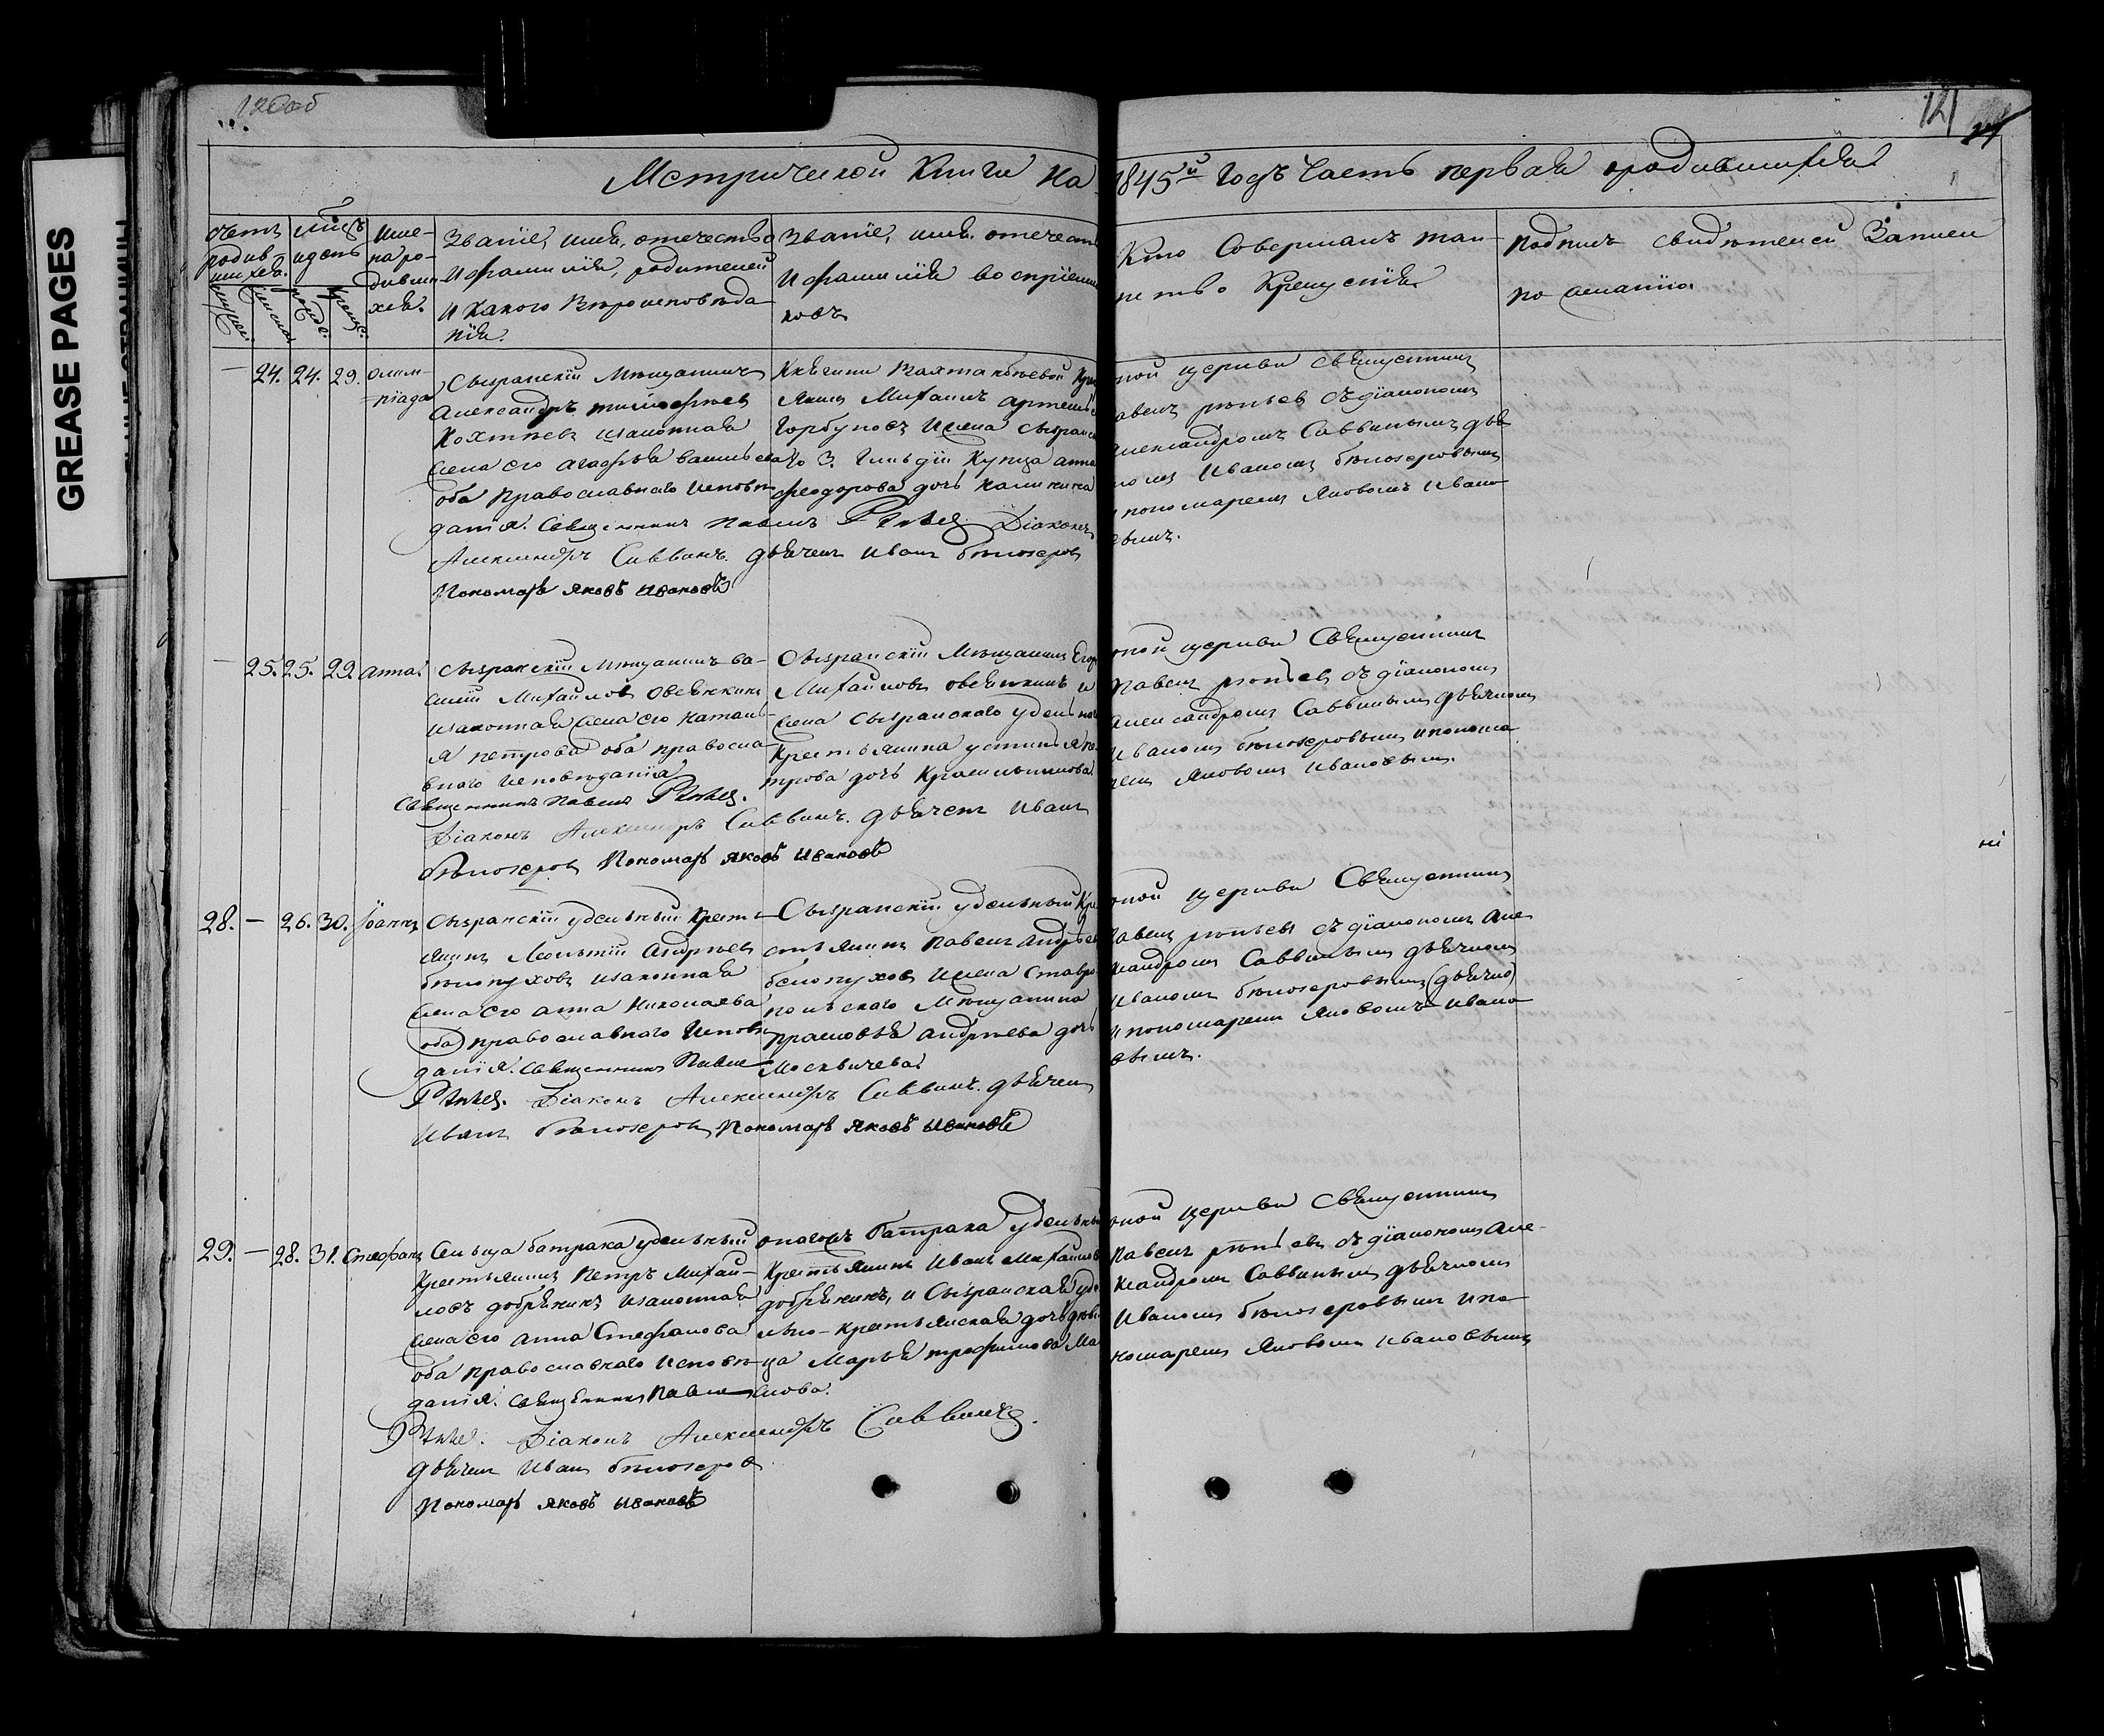 120об
121
GREASE PAGES
Метрической Книги на 1845й годъ Часть первая о родившихся
счетъ родившихся.
мѣсяцъ и день
Имена родившихся.
Званіе, имя, отечество и фамилія, родителей и какого вѣроисповѣданія.
Званіе, имя, отечест и фамилія воспріемниковъ
Кто совершалъ таинство Крещенія
Подпись свидѣтелей записи по желанію.
— 24. 24. 29. Олим-
піада
Сызранскій Мѣщанинъ
Александръ Тимофѣев
Кохтѣевъ и законная
жена его Агафья Васильева
оба православнаго исповѣ
данія. Священникъ Павелъ Діаконъ
Александръ Саввинъ. Дьячекъ Иванъ Бѣлозеровъ
Пономарь Яковъ Ивановъ
Княгини
янинъ Михаилъ Артемь
Горбуновъ и жена Сызранс
го 3. Гильдіи Купца Анна
Феодорова дочь Калинина
ной церкви Священникъ
авелъ съ діакономъ
Александромъ Саввинымъ дья
комъ Иваномъ Бѣлозеровымъ
и пономаремъ Яковомъ Ивано
вымъ.
— 25. 25. 29. Анна.
Сызранскій Мѣщанинъ Ва-
силій Михайловъ Овсянкинъ
и законная жена его Наталь-
я Петрова оба правосла-
внаго исповѣданія
Священникъ Павелъ
Діаконъ Александръ Саввинъ. Дьячекъ Иванъ
Бѣлозеровъ Пономарь Яковъ Ивановъ
Сызранскій Мѣщанинъ Егоръ
Михайловъ Овсянкинъ и
жена Сызранскаго удельнаго
Крестьянина Устинья Пе-
трова дочь Красильникова
ной церкви Священникъ
Павелъ съ діакономъ
Александромъ Саввинымъ дьячкомъ
Иваномъ Бѣлозеровымъ и понома
ремъ Яковомъ Ивановымъ.
28. — 26. 30. Іоаннъ
Сызранскій удельный крест-
янинъ Андрѣевъ
Бѣлопуховъ и законная
жена его Анна Николаева
оба православнаго исповѣ
данія. Священникъ Павелъ
Діаконъ Александръ Саввинъ. Дьячекъ
Иванъ Бѣлозеровъ Пономарь Яковъ Ивановъ
Сызранскій удельный Кре
стьянинъ Павелъ Андрѣев
Белопуховъ и жена Ставро-
польскаго Мѣщанина
Прасковья Андрѣева дочь
Москвичева
ной церкви Священникъ
Павелъ съ діакономъ Але
ксандромъ Саввинымъ дьячкомъ
Иваномъ Бѣлозеровымъ (дьячко)
и пономаремъ Яковомъ Ивано
вымъ.
29. — 28. 31. Стефанъ
Сельца Батрака удельный
крестьянинъ Петръ Михай-
ловъ Добрынинъ и законная
жена его Анна Стефанова
оба православнаго исповѣ-
данія. Священникъ Павелъ
Діаконъ Александръ Саввинъ.
Дьячекъ Иванъ Бѣлозеров
Пономарь Яковъ Ивановъ
онагожъ Батрака удельны
Крестьянинъ Иванъ Михайлов
Добрынинъ, и Сызранская уде
льно-крестьянская дочь дѣви
ца Марья Трофимова Ма
слова.
ной церкви Священникъ
Павелъ съ діакономъ Але-
ксандромъ Саввинымъ дьячкомъ
Иваномъ Бѣлозеровымъ и по-
номаремъ Яковомъ Ивановымъ